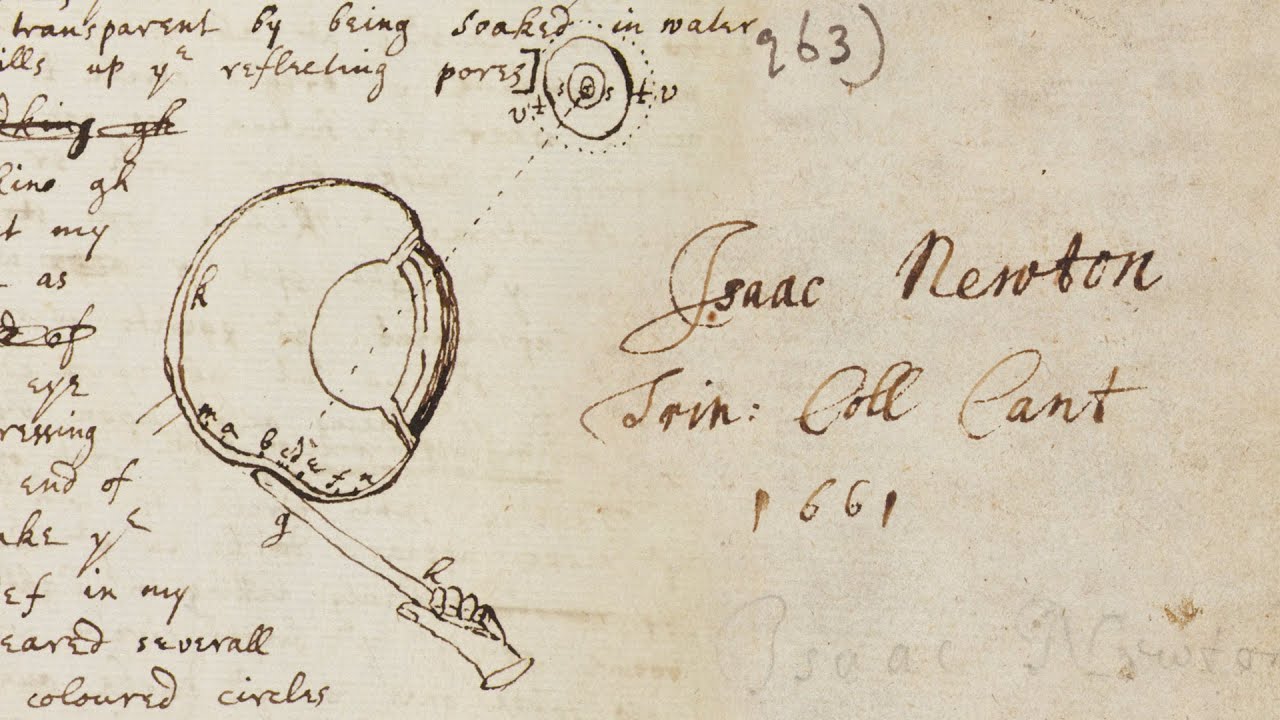 transparent by being soaked in water
ills up yᵉ reflecting pores]
v t s s t v
king gh
t my
as
k
eye
ressing
m a b c d e f n
end of
g
ake yᵉ
h
ef in my
eared severall
coloured circles
963)
Isaac Newton
Trin: Coll Cant
1661
Isaac Newton